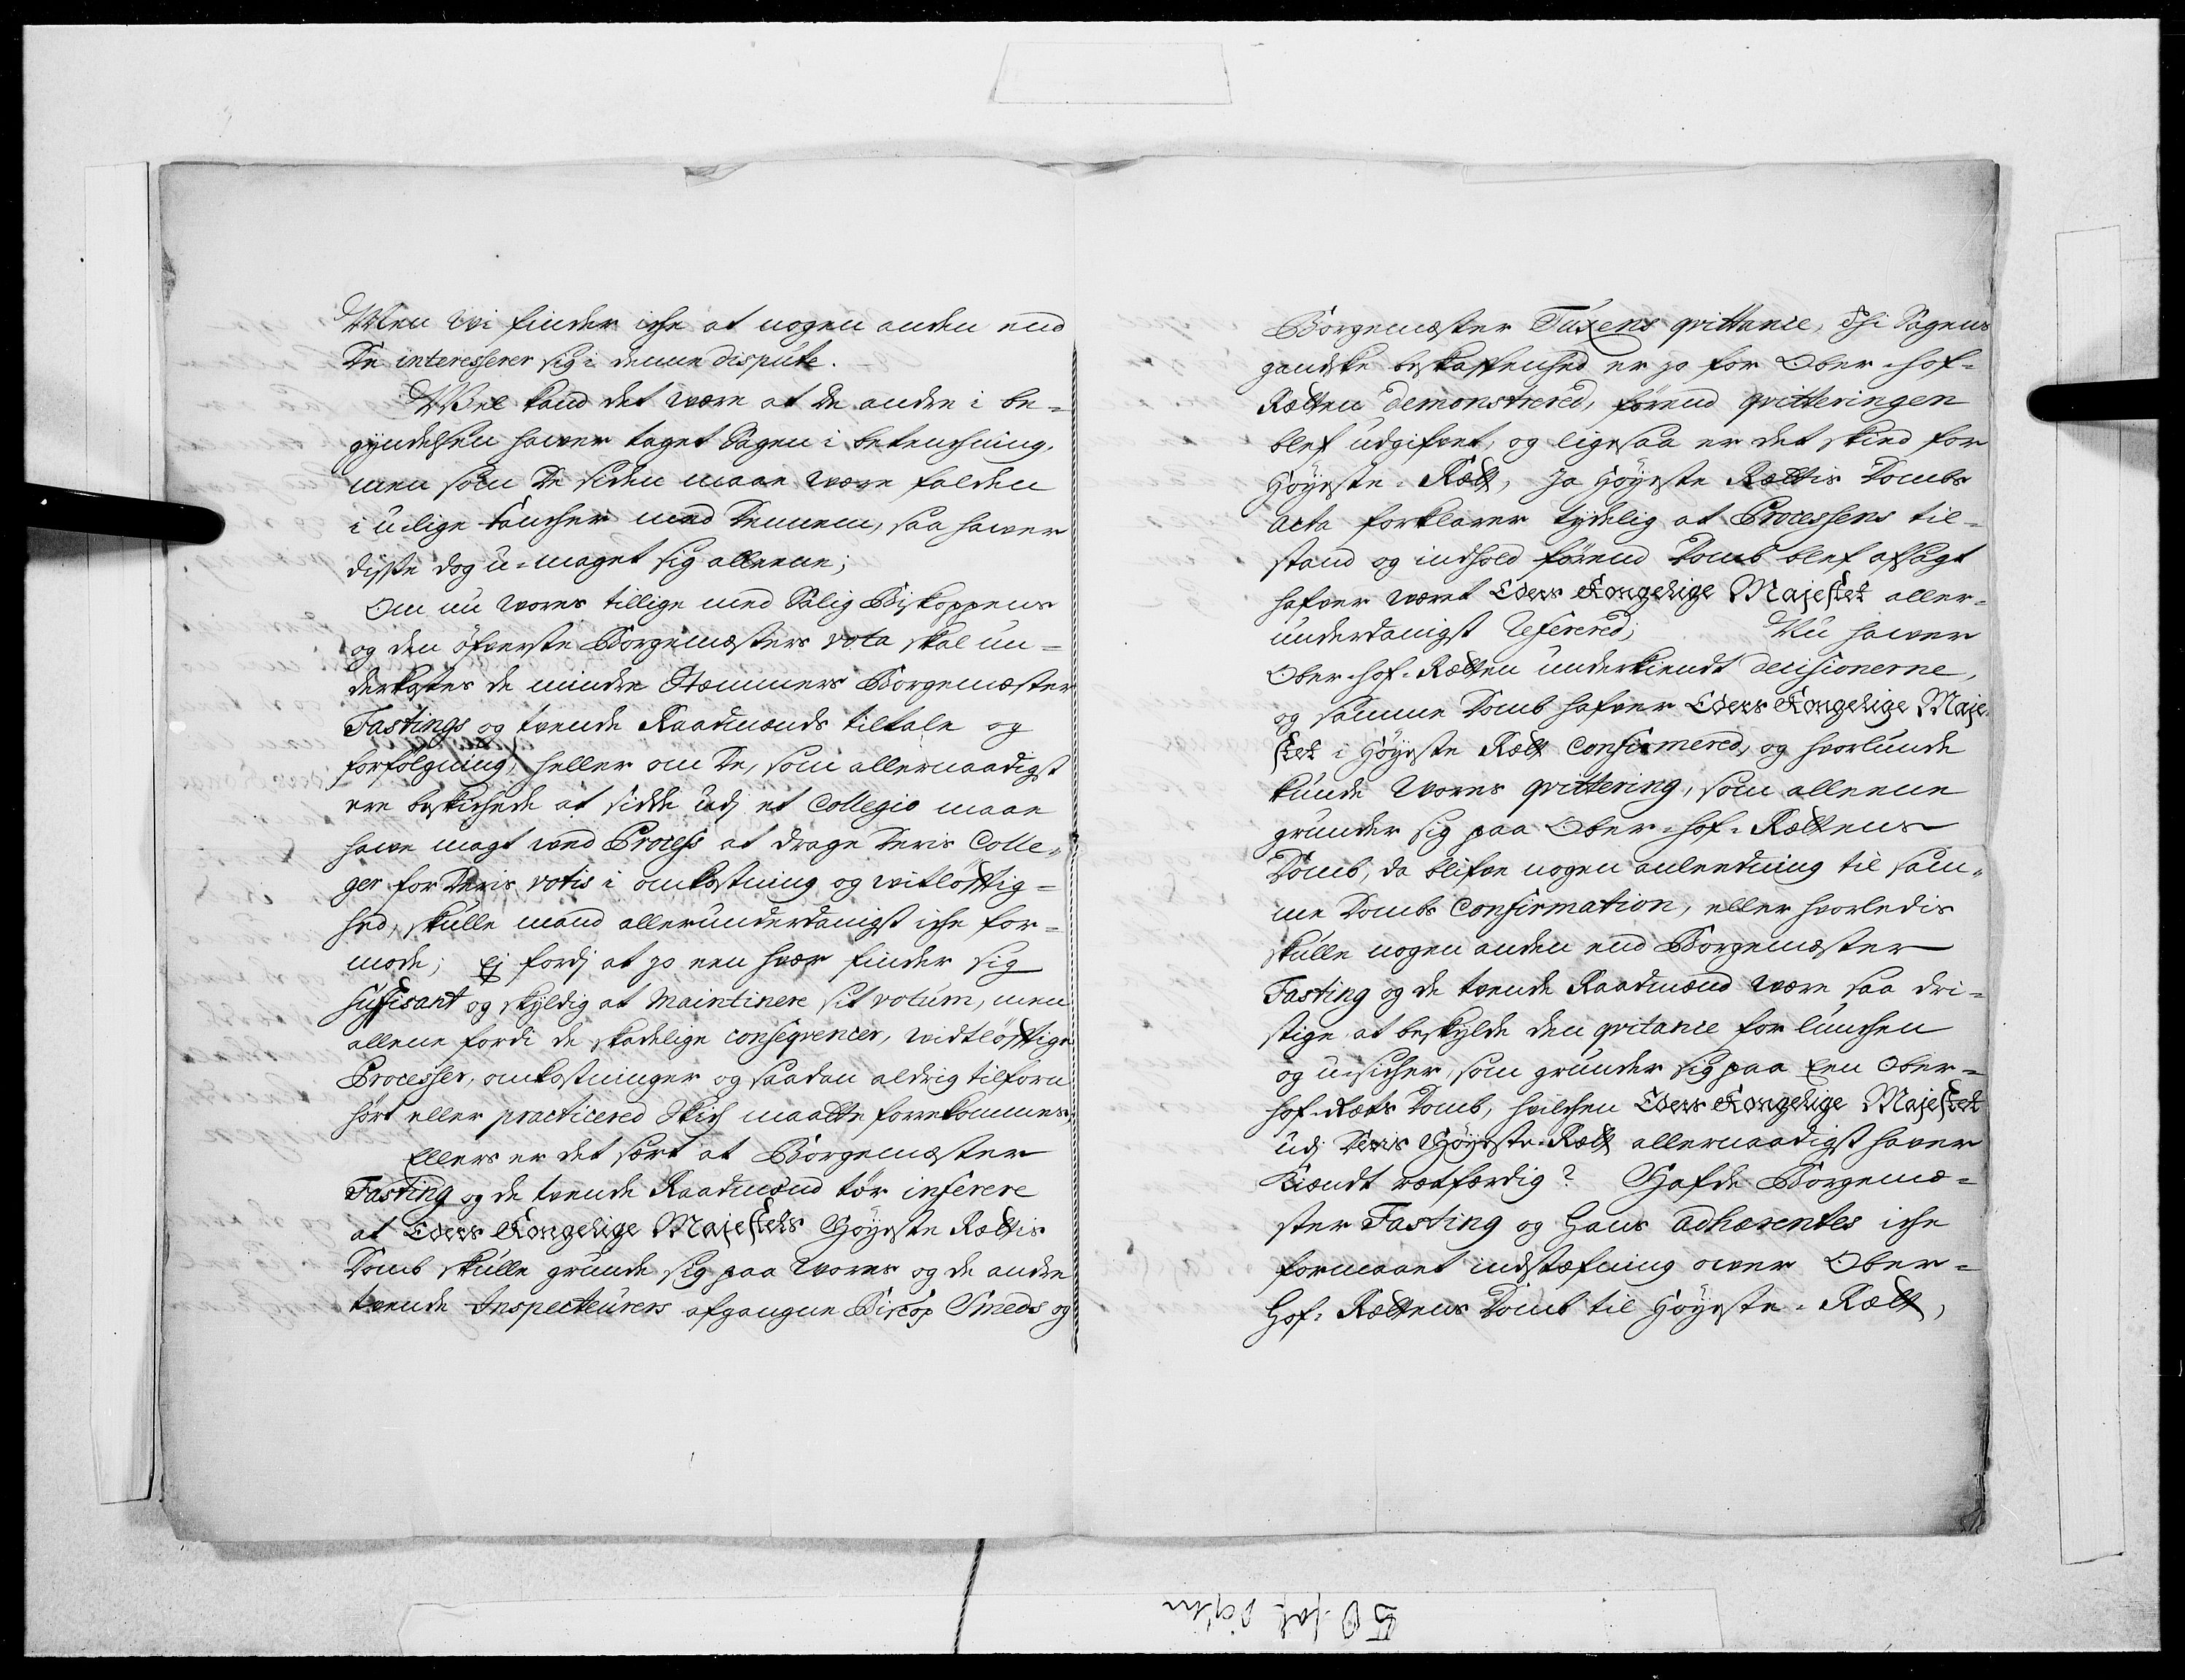 Men wi finder iche at nogen anden end
De interesserer sig i denne dispute.
Vel kand det være at de andre i be-
gyndelsen hawer taget Sagen i betenchning,
men som De siden maae være falden
i ulige tancher med dennem, saa hawer
disse dog u-maget sig alleene;
Om nu wores tillige med Salig Biskoppens
og den öfverste Borgemæsters vota skal un-
derkastes de mindre Stemmers Borgemæster
Fastings og tvende Raadmænds tiltale og
forfölgning, heller om De, som allernaadigst
ere beskichede at sidde udj et Collegio maae
hawe magt wed Process at drage deris Colle-
ger for deris votis i omkostning og witlöfftig-
hed, skulle mand allerunderdanigst iche for-
mode; Ej fordj at jo een hver finder sig
suffisant og skyldig at maintinere sit votum, men
allene fordi de skadelige conseqvencer, widtlöfftige
Processer, omkostninger og saadan aldrig tilforn
hört eller practicered Skich maatte forrekommes,
Ellers er det sært at Borgemæster
Fasting og de tvende Raadmænd tör inferere
at Eders Kongelige Majestets Höyeste Rettis
Domb skulle grunde sig paa wores og de andre
tvende Inspecteurers afgangne Biscop Smeds og
Borgemæster Tuxens qvittance, Thi Sagens
gandske beskaffenhed er jo for Ober-Hof-
Retten demonstrered, förend qvitteringen
blef udgifvet, og ligesaa er det skied for
Höyeste-Rett, Ja Höyeste Rettis Dombs
acta forklarer tydelig at Processens til-
stand og indhold förend Domb blef afsagt
hafver været Eders Kongelige Majestet aller-
underdanigst refererd; Nu hawer
Ober-Hof-Retten underkiendt decisionerne,
og samme Domb hafver Eders Kongelige Maje-
stet i Höyeste Rett confirmered, og hvorlunde
kunde wores qvittering, som alleene
grunder sig paa Ober-Hof-Rettens
Domb, da blifve nogen anleedning til sam-
me Dombs Confirmation, eller hvorledis
skulle nogen anden end Borgemæster
Fasting og de tvende Raadmænd være saa dri-
stige at beskylde den qvitance for lunchen
og u-sicher, som grunder sig paa Een Ober-
Hof-Rets Domb, hvilchen Eders Kongelige Majestet
udj Deris Höyeste-Rett allernaadigst hawer
Kiændt retfærdig? Hafde Borgemæ-
ster Fasting og Hans adhærentes iche
formaaet indstæfning ower Ober-
Hof-Rettens Domb til Höyeste-Rett,